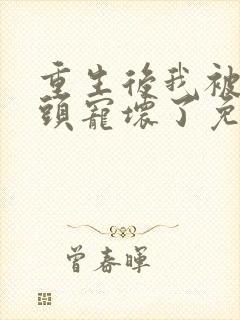 重生後我被
頭寵壞了免
曾春暉